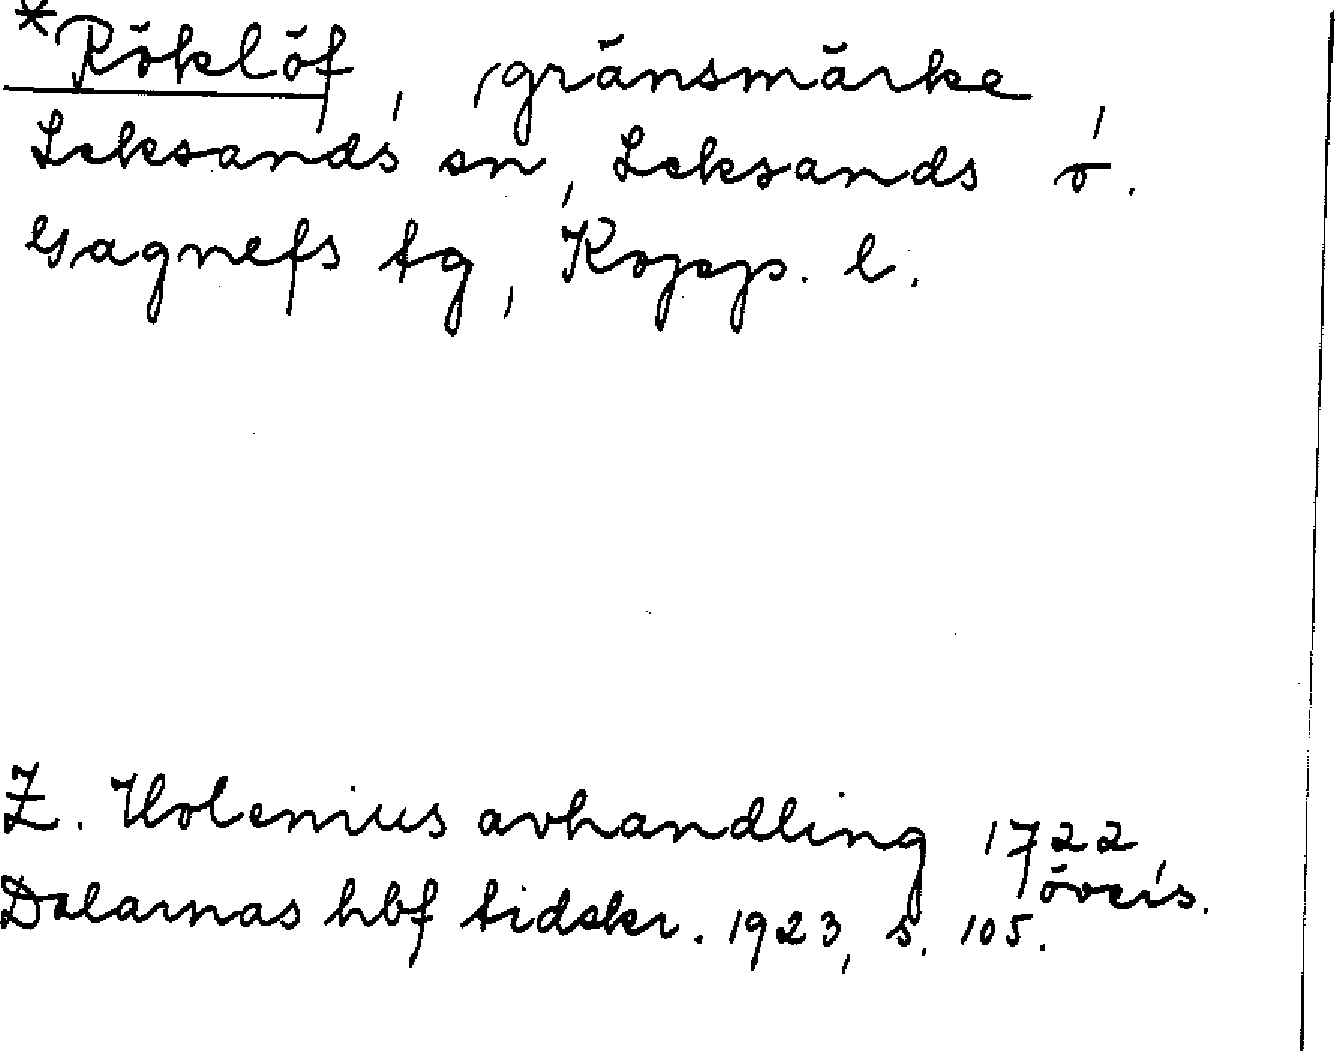 *Röklöf, gränsmärke,
Leksands sn, Leksands o.
Gagnefs tg, Kopp. l.
Z. Holenius avhandling 1722
övers.
Dalarnas hbf tidskr. 1923, s. 105.